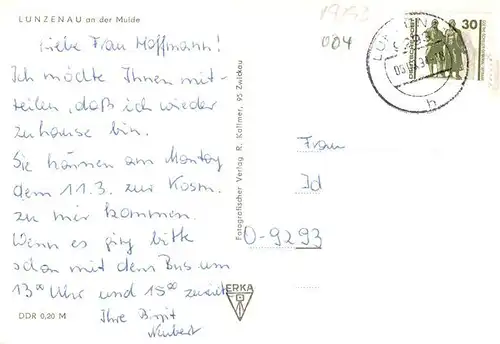 LUNZENAU an der Mulde
Liebe Frau Hoffmann!
Ich möchte Ihnen mit-
teilen, daß ich wieder
zuhause bin.
Sie können am Montag
dem 11.3. zur Kosm.
zu mir kommen.
Wenn es ging bitte
schon mit dem Bus um
13⁰⁰ Uhr und 15⁰⁰ zurück
Ihre Birgit
Neubert
DDR 0,20 M
Fotografischer Verlag R. Kallmer, 95 Zwickau
ERKA
004
30
DEUTSCHE POST
Frau
Id
O-9293